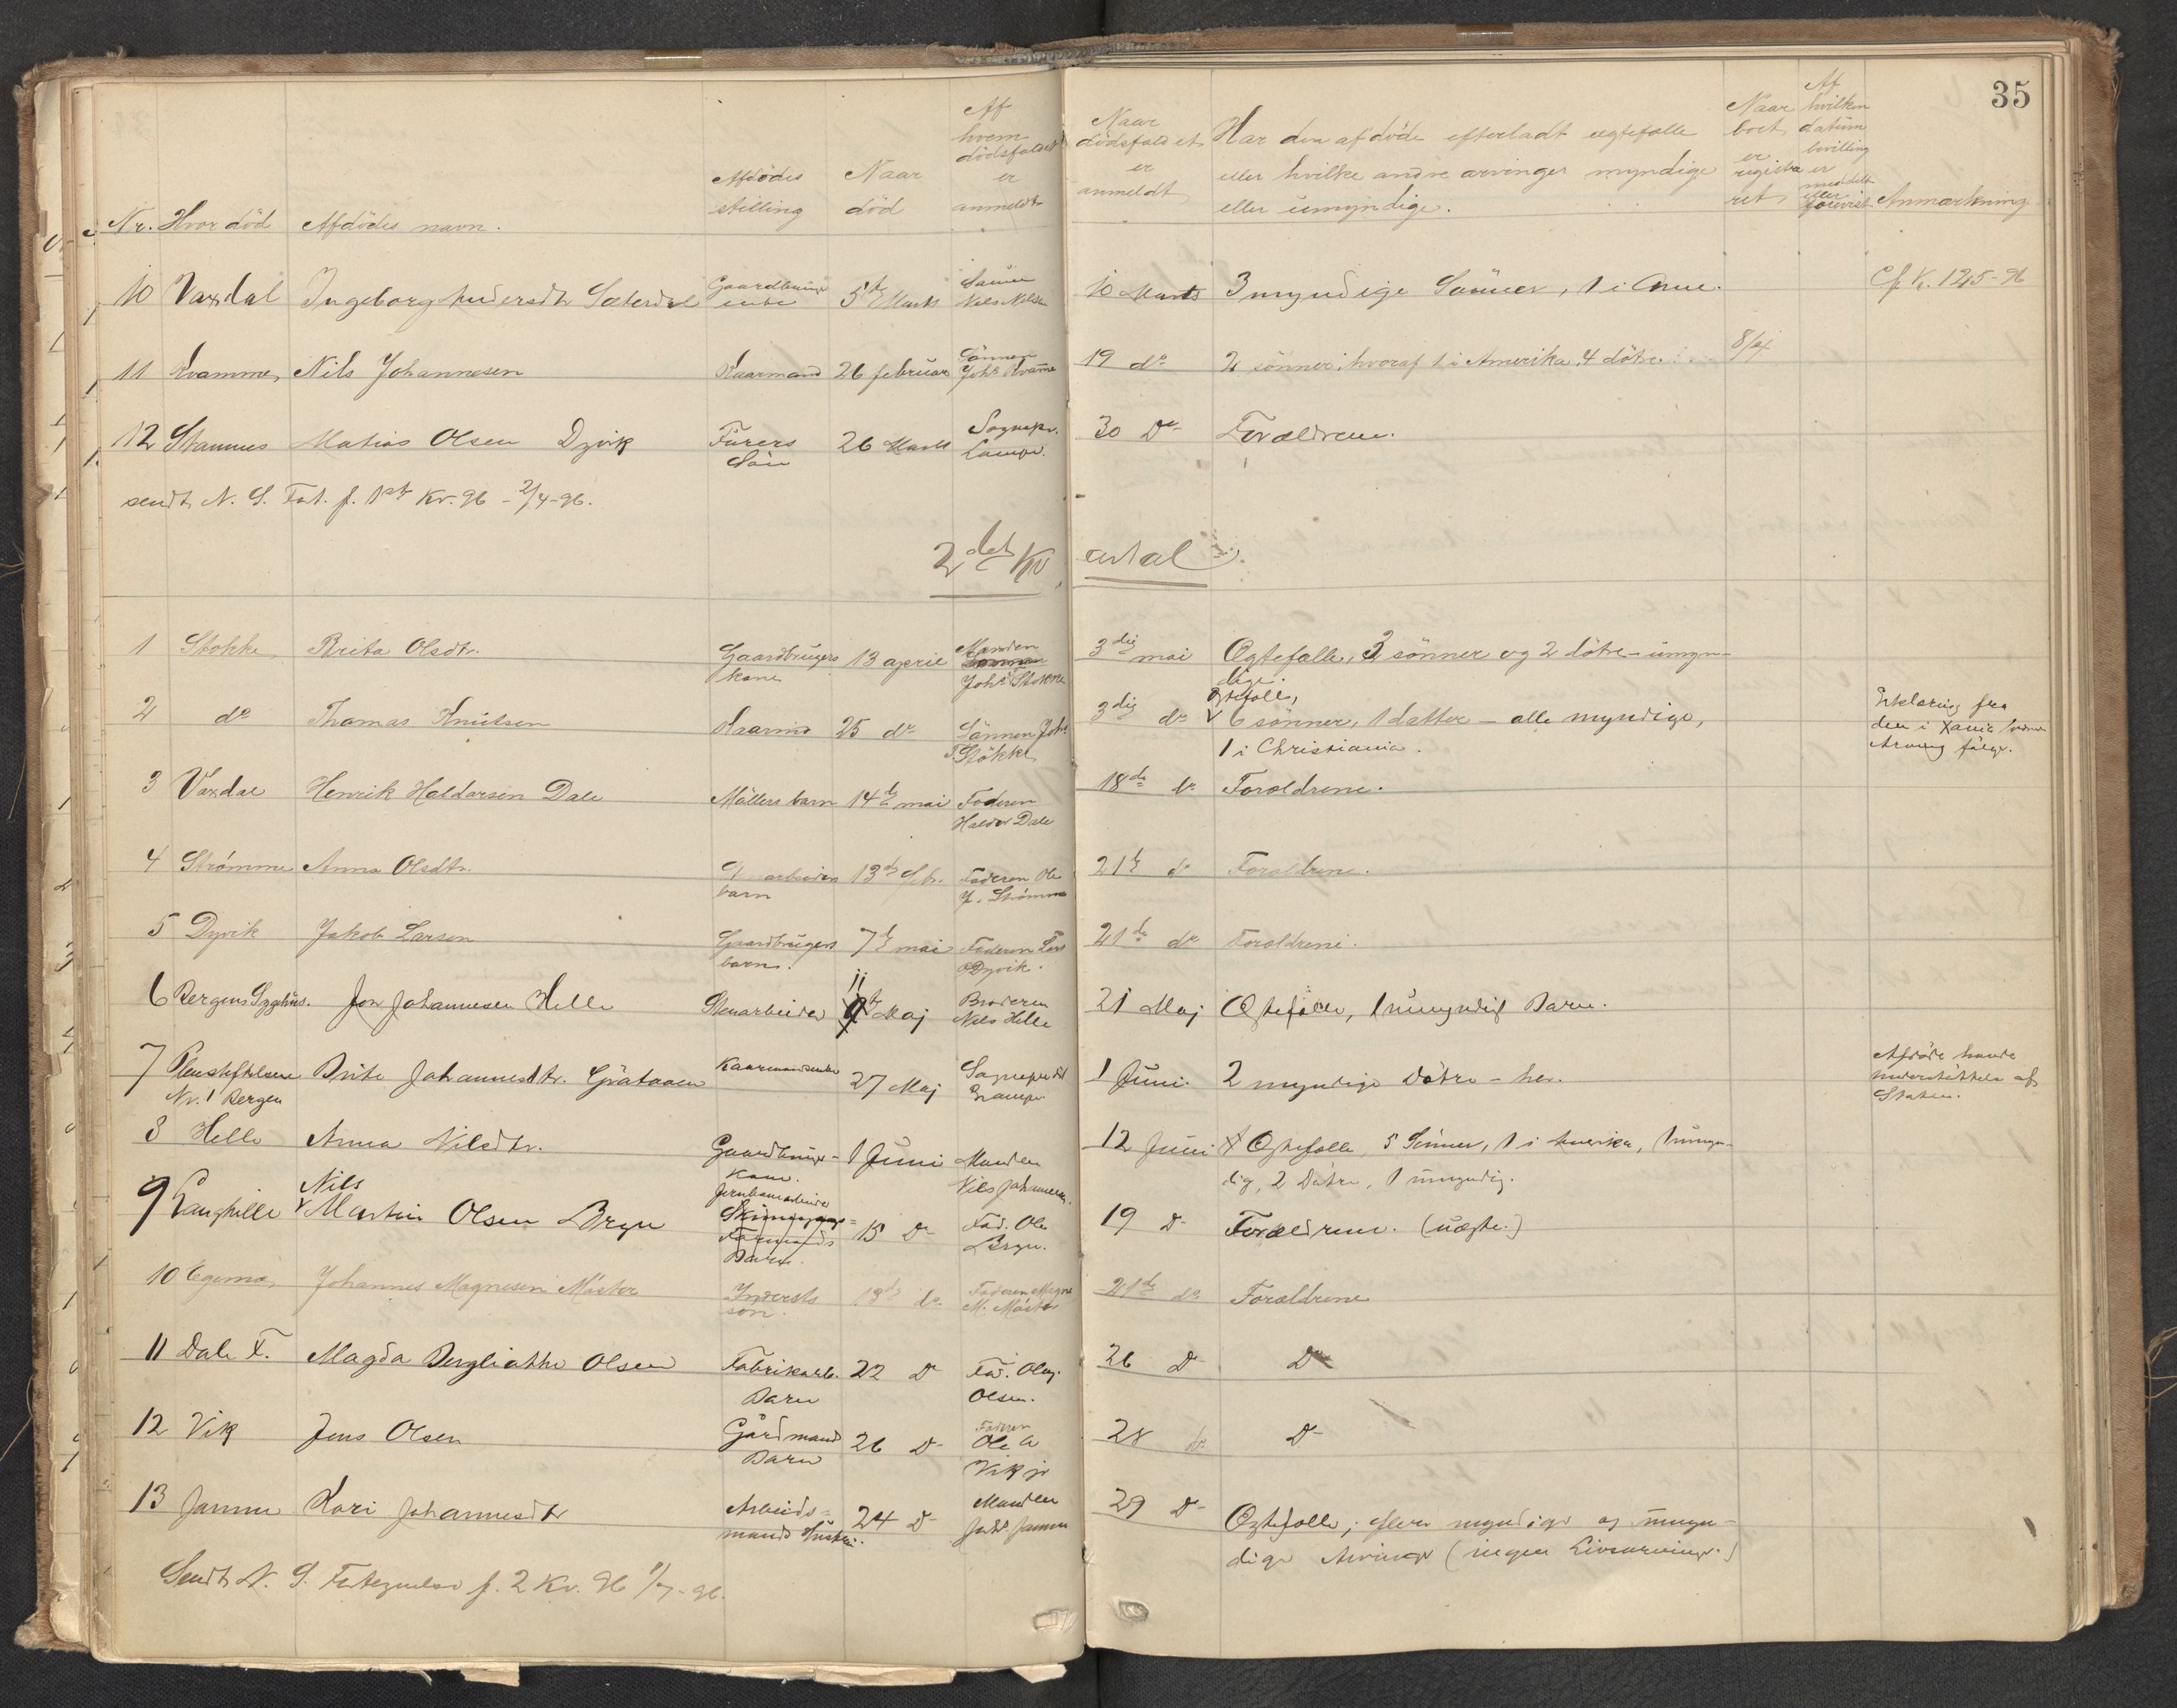 35
Nr. Hvor död Afdödes navn. Afdödes stilling Naar död Af hvem dödsfaldet er anmeldt Naar dödsfaldet er anmeldt Har den afdöde efterladt ægtefælle eller hvilke andre arvinger myndige eller umyndige. Naar boet er registreret Af hvilken datum bevilling er meddelt eller forevist Anmærkning
10 Vaxdal Ingeborg Andersdtr Sæterdal Gaardbruger enke 5te Marts Sönn Nils Nilsen 10 Marts 3 myndige Sönner, 1 i Ame. Cf. K. 125-96
11 Kvamme, Nils Johannesen Kaarmand 26 februar Sönnen Johs Kvamme 19 do 2 sönner, hvoraf 1 i Amerika, 4 dötre.
12 Stamnes Matias Olsen Dyvik Fürers Sön 26 Marts Sognepr. Lampe. 30 Do Forældrene.
sendt N. S. Fort. f. 1ste Kv. 96 - 2/4-96.
2det Kvartal
1 Stokke Brita Olsdtr. Gaardbrugers kone 13 april Manden Johs Stokke 3die mai Ægtefælle, 3 sönner og 2 dötre - umyndige.
2 do Thomas Knutsen Kaarmd 25 do Sönnen Johs Stokke 3die do Ægtefælle, 6 sönner, 1 datter - alle myndige, 1 i Christiania. Erklæring fra den i Xania Arving fölger.
3 Vaxdal Henrik Haldorsen Dale Möllers barn 14de mai Faderen Haldor Dale 18de do Forældrene.
4 Strømme Anna Olsdtr. barn 13de Febr. Faderen Ole J. Strømme 21de do Forældrene.
5 Dyvik Jakob Larsen Gaardbrugers barn. 7de mai Faderen Lars O Dyvik. 21de do Forældrene.
6 Bergens Sygehus. Jon Johannesen Helle Stenarbeider 11 Maj Broderen Nils Helle 21 Maj Ægtefælle, 1 umyndigt Barn.
7 Pleiestiftelsen Nr. 1 Bergen Brite Johannesdtr. Kaarmandsenke 27 Maj Sogneprest Lampe 1 Juni. 2 myndige Dötre - her. Afdöde havde understöttelse af Staten.
8 Helle Anna Nilsdtr. Gaardbruger-Kone. 1 Juni Manden Nils Johannesen. 12 Juni Ægtefælle, 5 Sönner, 1 i Amerika, 1 umyndig, 2 Dötre, 1 umyndig.
9 Langhelle Nils Martin Olsen Bryn Jernbanearbeider Barn. 15 Do Fad. Ole Bryn. 19 D Forældrene. (uægte.)
10 Johannes Magnesen Mäster Inderstssön. 19de do. Faderen Magne M. Mäster 21de do Forældrene
11 Dale F. Magda Bergliotte Olsen Fabrikarb. Barn 22 D Fad. Olsen. 26 D D
12 Vik Jens Olsen Gårdmand Barn 26 D Faderen Ole A Vik jr 28 do D
13 Jamne Kari Johannesdtr Arbeidsmands Hustru. 24 D Manden Johs. Jamne 29 D Ægtefælle, flere myndige og umyndige Arvinger (ingen Livsarvinger.)
Sendt N. S. Fortegnelse f. 2 Kv. 96 1/7-96.